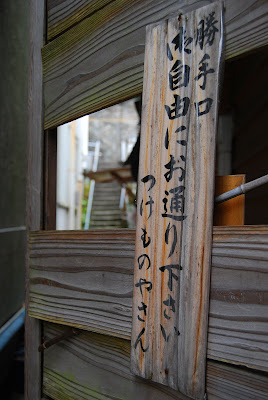 勝手口
御自由にお通り下さい
つけものやさん